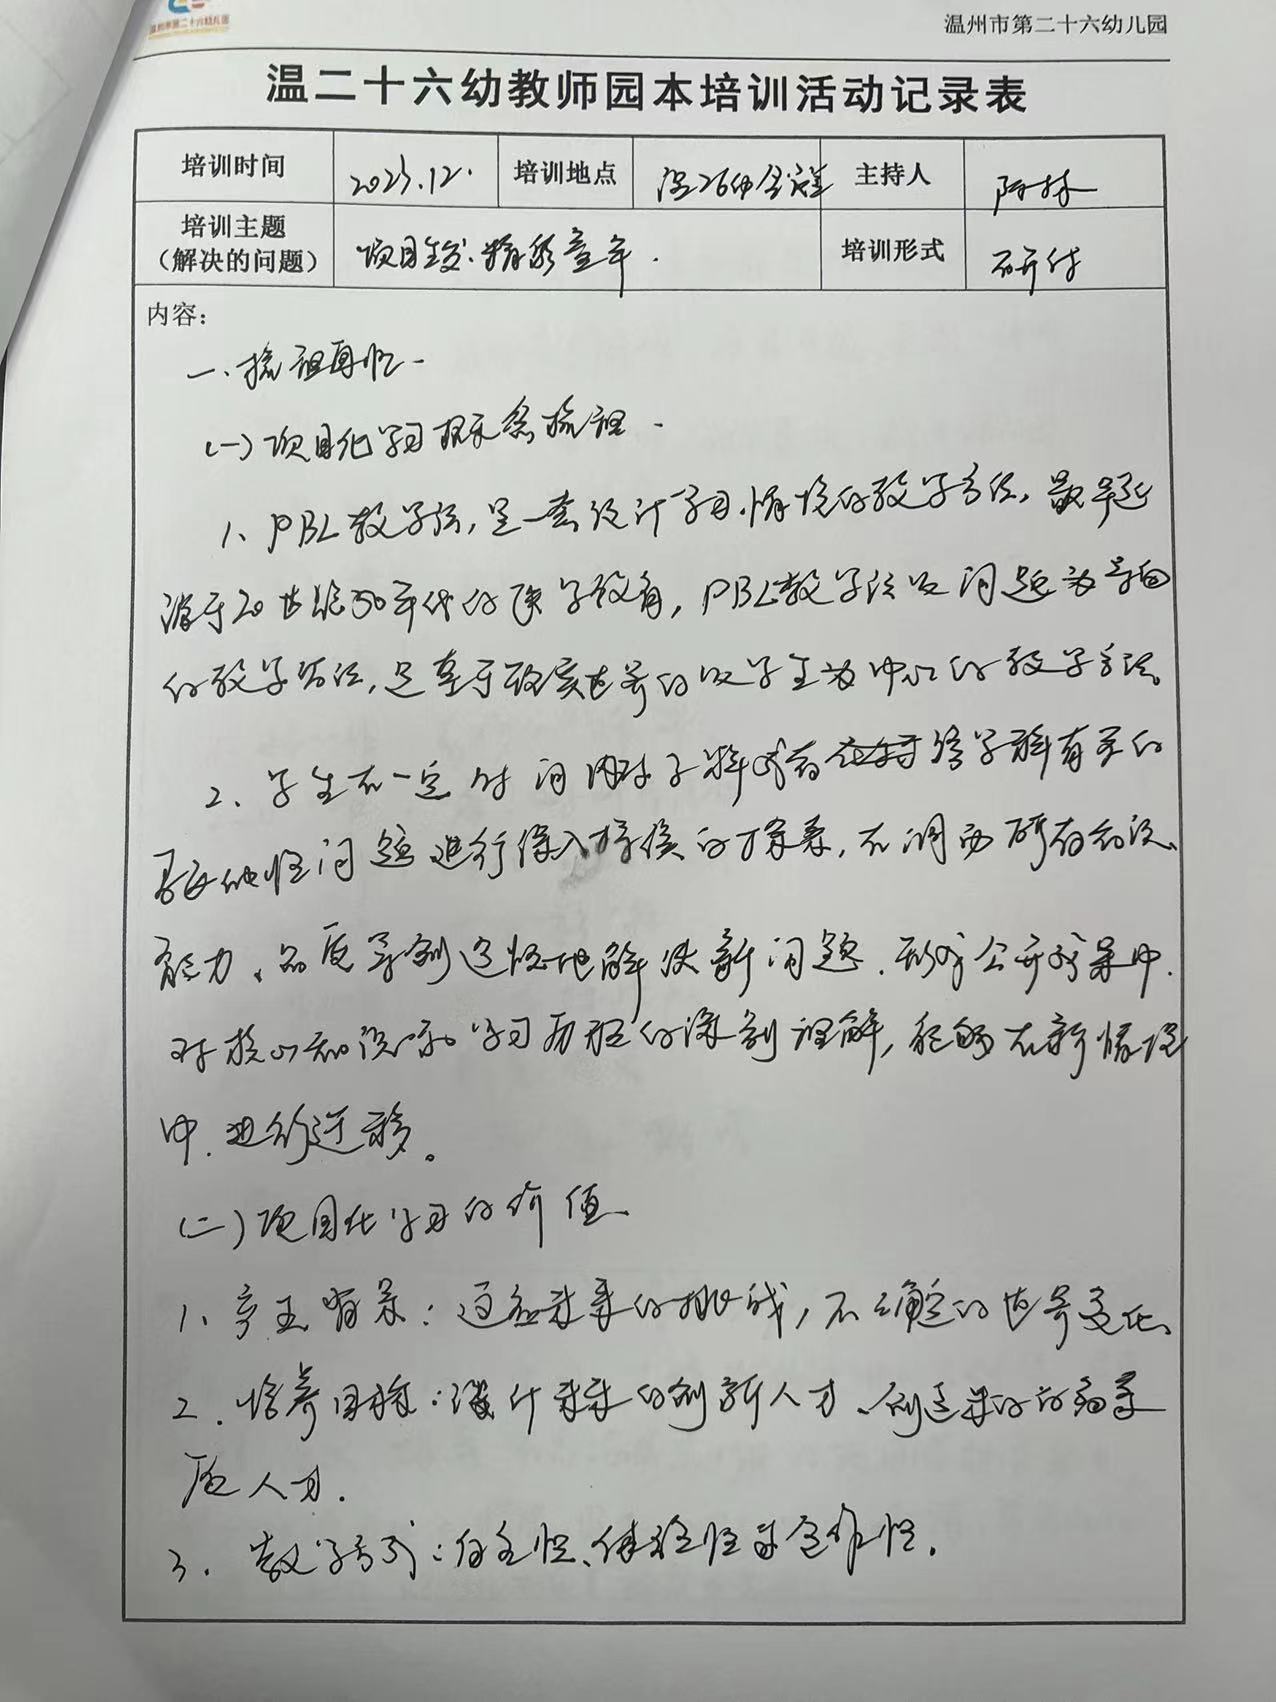 温州市第二十六幼儿园
温州市第二十六幼儿园
温二十六幼教师园本培训活动记录表
培训时间 2023.12. 培训地点 温26幼 主持人
培训主题
(解决的问题) 项目 精彩童年. 培训形式 研付
内容：
一、
(一)项目化学习 梳理.
1、PBL教学法，是一套设计学习情境的教学方法，最早起
源于20世纪50年代的医学教育，PBL教学法以问题为导向
的教学方法，是基于现实世界的以学生为中心的教学方法。
2、学生在一定时间内对学科或者 跨学科有关的
驱动性问题进行深入持续的探索，在调动所有知识、
能力、品质等创造性地解决新问题.形成公开成果中.
对核心知识和学习历程的深刻理解，能够在新情境
中.进行迁移。
(二)项目化学习的价值
1、 背景：适应未来的挑战，不确定的世界变化、
2. 培养目标： 未来的创新人才、创造 的高素
质人才.
3. 教学方式：自主性、体验性与合作性.